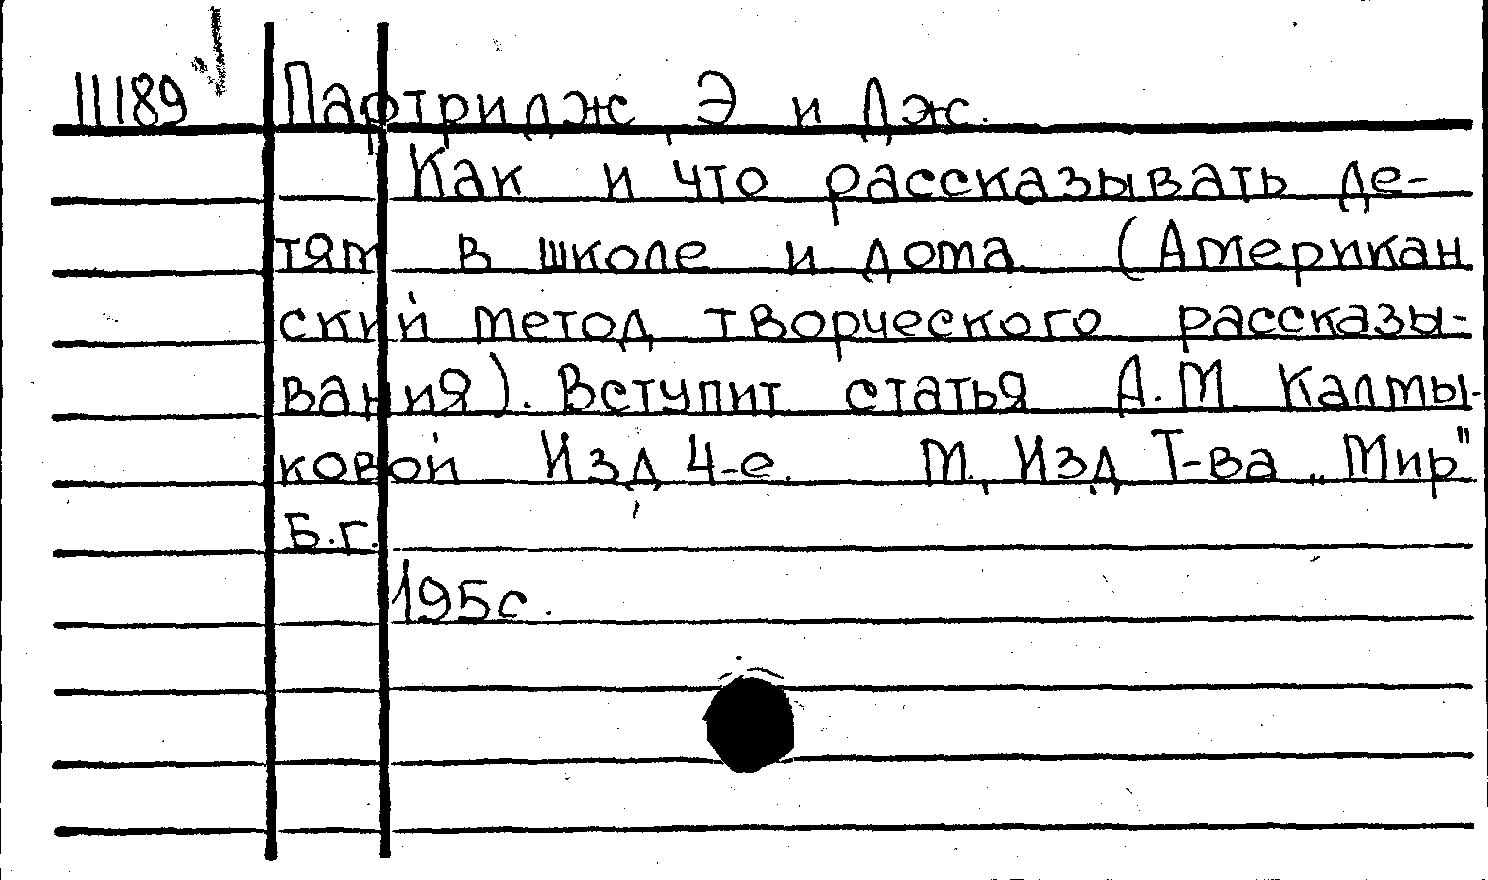 11189 Партридж, Э и Дж.
Как и что рассказывать де-
тям в школе и дома (Американ
ский метод творческого рассказы-
вания). Вступит статья А.М. Калмы-
ковой Изд, 4-е. М., Изд Т-ва „Мир"
Б.г.
195с.